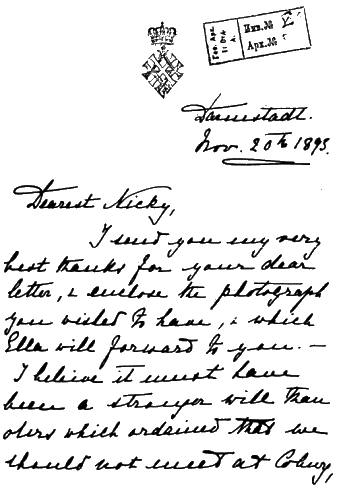 Инв. №
Арх. №
Darmstadt.
Nov. 20th 1893.
Dearest Nicky,
I send you my very
best thanks for your dear
letter, & enclose the photograph
you wished to have, & which
Ella will forward to you. —
I believe it must have
been a stronger will than
ours which ordained that we
should not meet at Coburg,